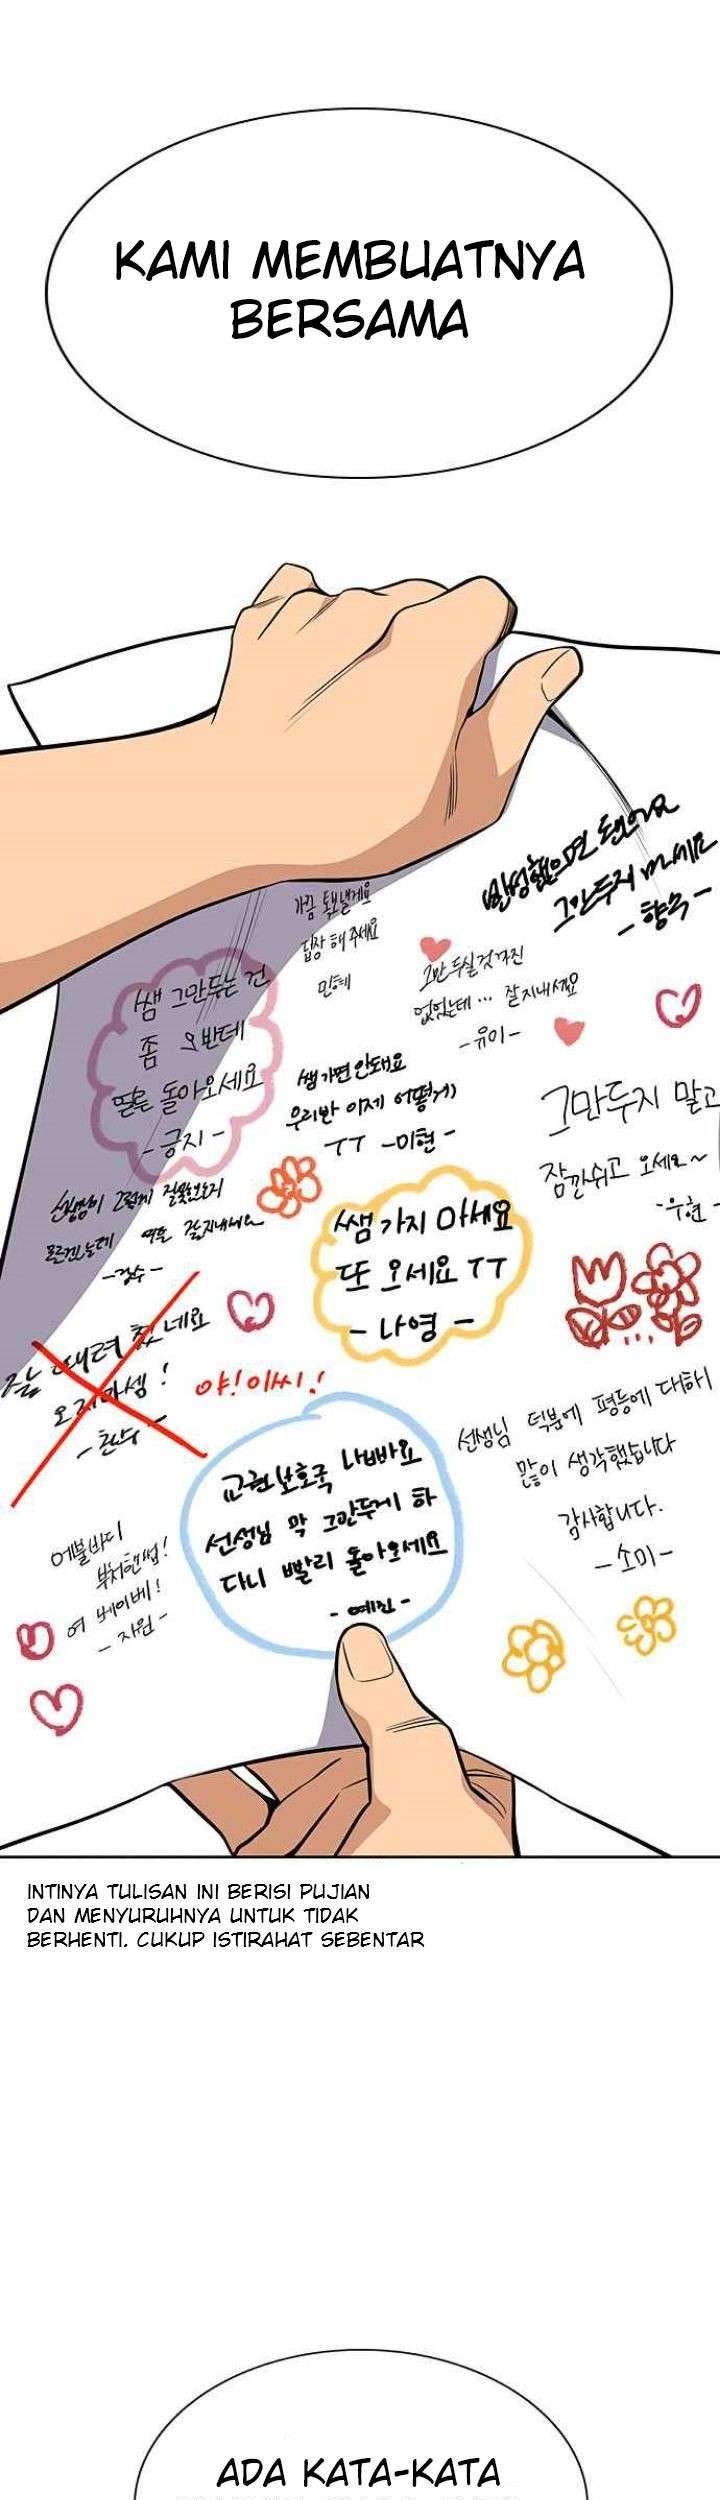 KAMI MEMBUATNYA
BERSAMA
반성했으면 됐어요
그만두지 마세요
-향숙-
가끔 톡보낼게요
답장 해주세요
민혜
그만 두실 것 까진
없었는데... 잘 지내세요
-유이-
쌤 그만두는 건
좀 오반데
얼른 돌아오세요
-긍지-
쌤 가면 안돼요
우리반 이제 어떻게
TT -미현-
그만두지 말고
잠깐쉬고 오세요~
-우현-
선생님이 그렇게 잘못했는지
모르겠는데 여튼 잘지내세요
-경수-
쌤 가지 마세요
또 오세요 TT
-나영-
때려 쳤네요
오지마셈!
-환수-
야! 이씨!!
선생님 덕분에 평등에 대하
많이 생각했습니다
감사합니다.
-소미-
교권보호국 나빠요
선생님 막 그만두게 하
다니 빨리 돌아오세요
-예진-
에블바디
부처핸썹!
여 베이베!
-자원-
INTINYA TULISAN INI BERISI PUJIAN
DAN MENYURUHNYA UNTUK TIDAK
BERHENTI. CUKUP ISTIRAHAT SEBENTAR
ADA KATA-KATA